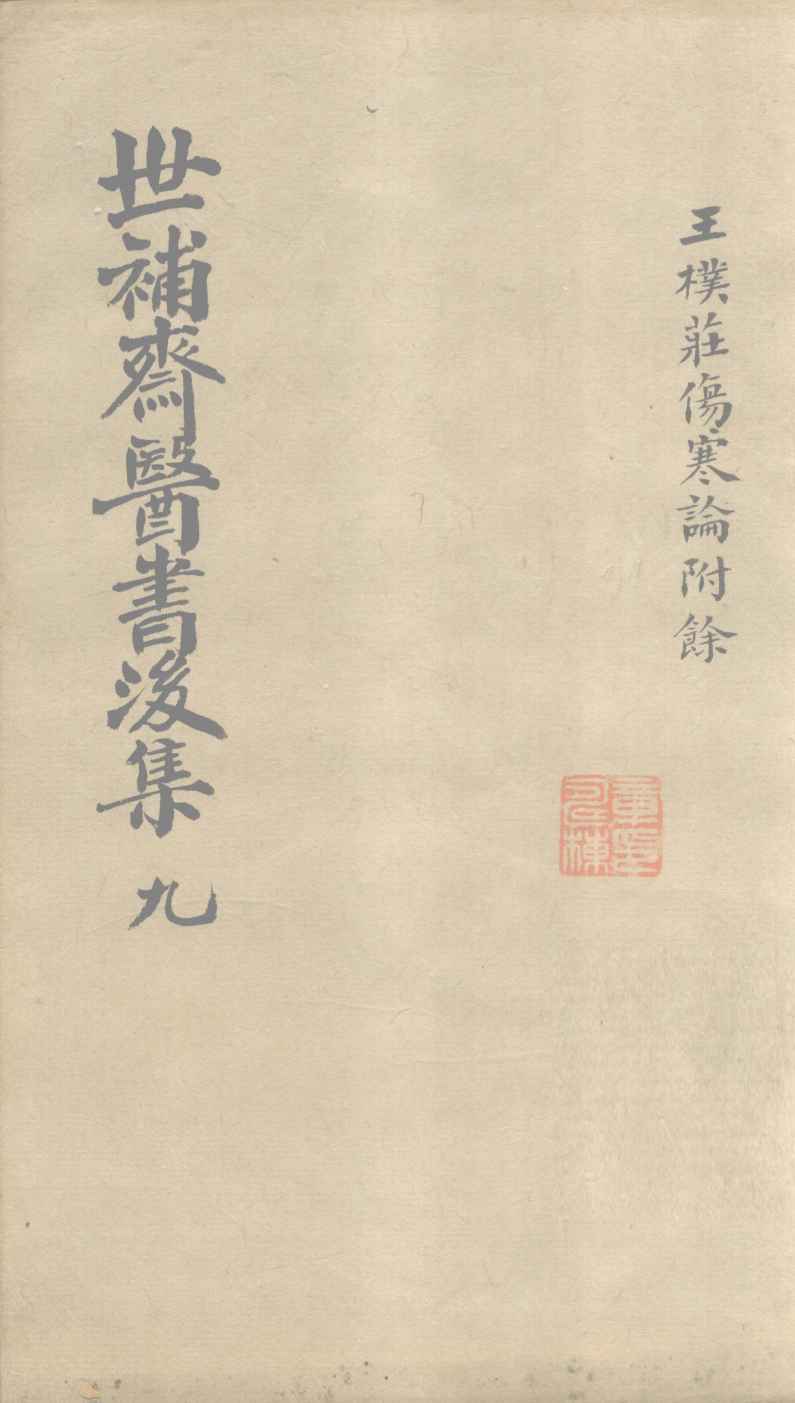 王樸莊傷寒論附餘
世補齋醫書後集 九